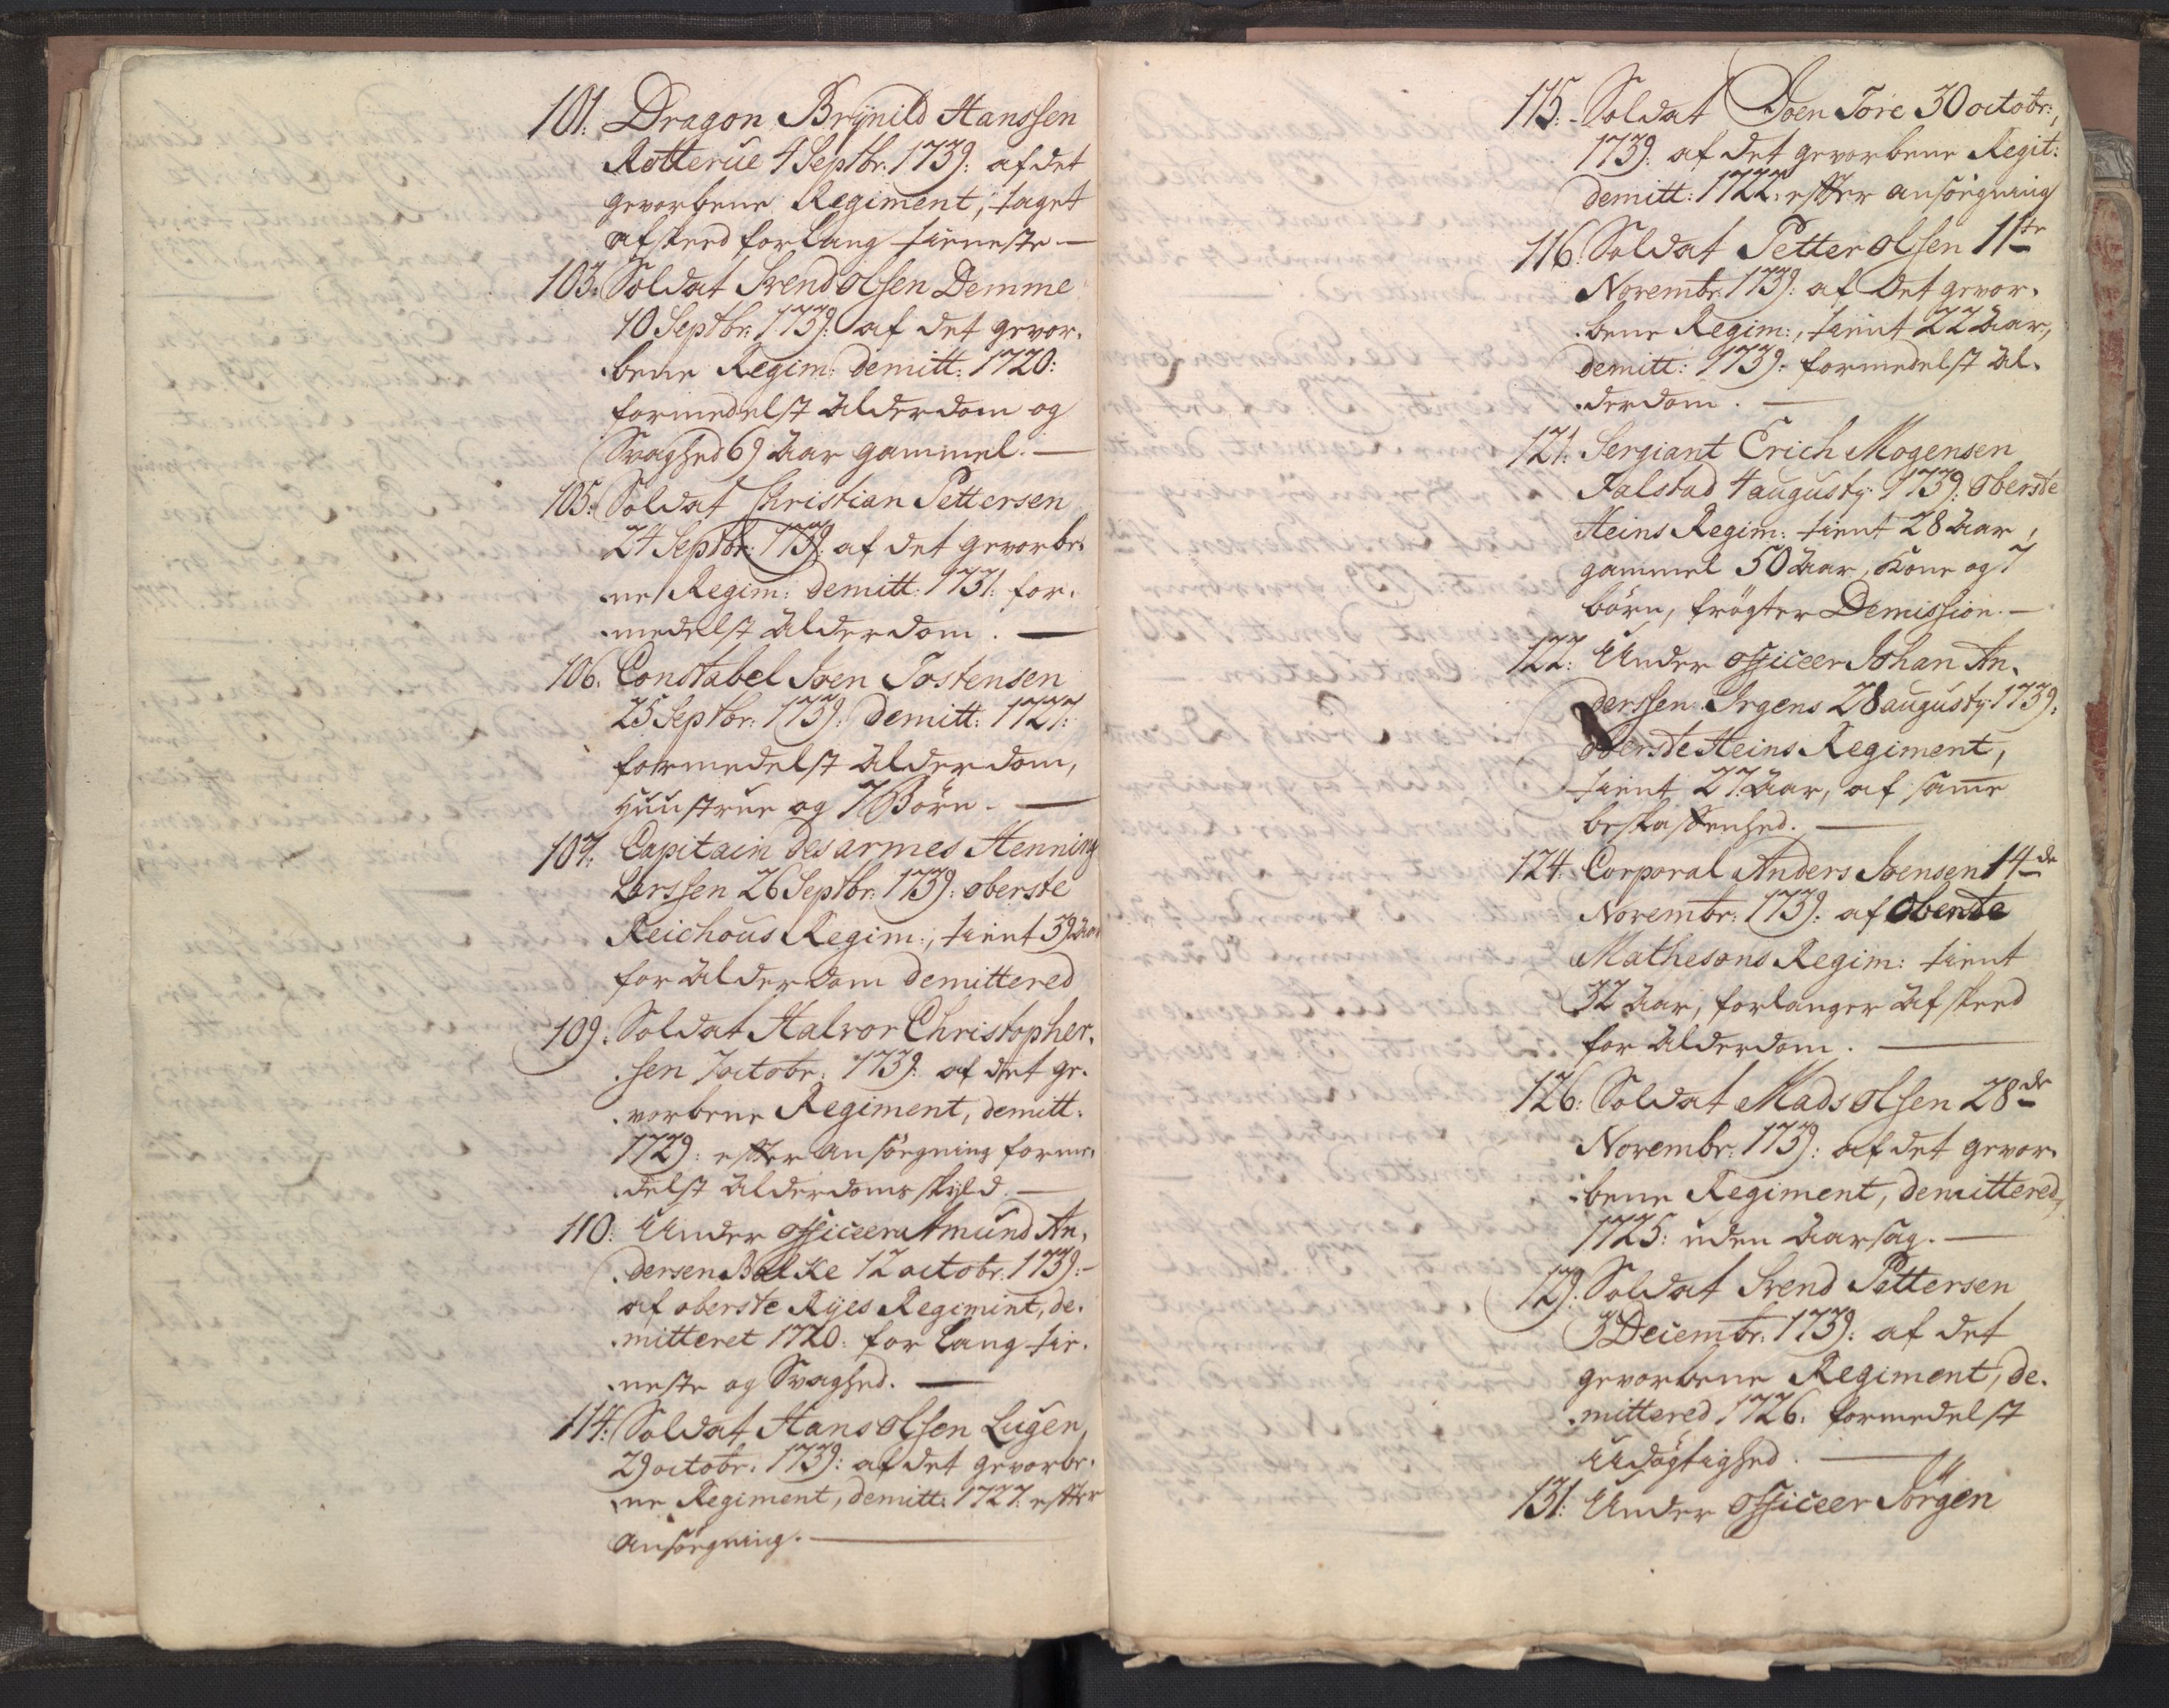 101: Dragon Brÿnild Hanssen
Rotterüe 4 Septbr: 1739: af det
gevorbene Regiment, taget
afskeed for lang tieneste —
103: Soldat Svend Olsen Demme
10 Septbr: 1739: af det gevor-
bene Regim: demitt: 1720:
formedelst alderdom og
Svaghed 69 aar gammel. —
105: Soldat Christian Pettersen
24 Septbr: 1739: af det gevorbe-
ne Regim: demitt: 1731: for-
medelst alderdom. —
106. Constabel Sven Tostensen
25 Septbr: 1739: demitt: 1727:
formedelst alderdom,
Huustrue og 7 Börn. —
107: Capitain des armes Henning
Larssen 26 Septbr: 1739: oberste
Reichous Regim:, tient 39 aar
for alderdom demittered
109: Soldat Halvor Christopher-
sen 7 octobr: 1739: af det ge-
vorbene Regiment, demitt:
1729: efter ansögning forme-
delst alderdoms skyld. —
110: Under officeer Amund An-
dersen Balke 12 octobr: 1739:
af oberste Ryes Regimint, de-
mitteret 1720: for lang tie-
neste og Svaghed. —
114: Soldat Hans Olsen Lugen
29 octobr: 1739: af det gevorbe-
ne Regiment, demitt: 1727. efter
ansögning. —
115: Soldat Joen Tore 30 octobr:
1739: af det gevorbene Regit:
demitt: 1722: efter ansögning
116: Soldat Petter Olsen 11te
Novembr: 1739: af det gevor-
bene Regim:, tient 22 aar,
demitt: 1739: formedelst al-
derdom. —
121: Sergiant Erich Mogensen
Falstad 4 augusty 1739: oberste
Heins Regim: tient 28 aar,
gammel 50 aar, Kone og 7
börn, frögter Demission. —
122: Under officeer Johan An-
derssen Irgens 28 augusty 1739:
oberste Heins Regiment,
tient 27 aar, af same
beskaffenhed. —
124: Corporal Anders Svensen 14de
Novembr: 1739: af Oberste
Mathesons Regim: tient
32 aar, forlanger afskeed
for alderdom. —
126: Soldat Mads Olsen 28de
Novembr: 1739: af det gevor-
bene Regiment, demittered,
1725: uden aarsag. —
129: Soldat Svend Pettersen
3 Decembr: 1739: af det
gevorbene Regiment, de-
mittered 1726. formedelst
Udögtighed. —
131: Under officeer Jörgen